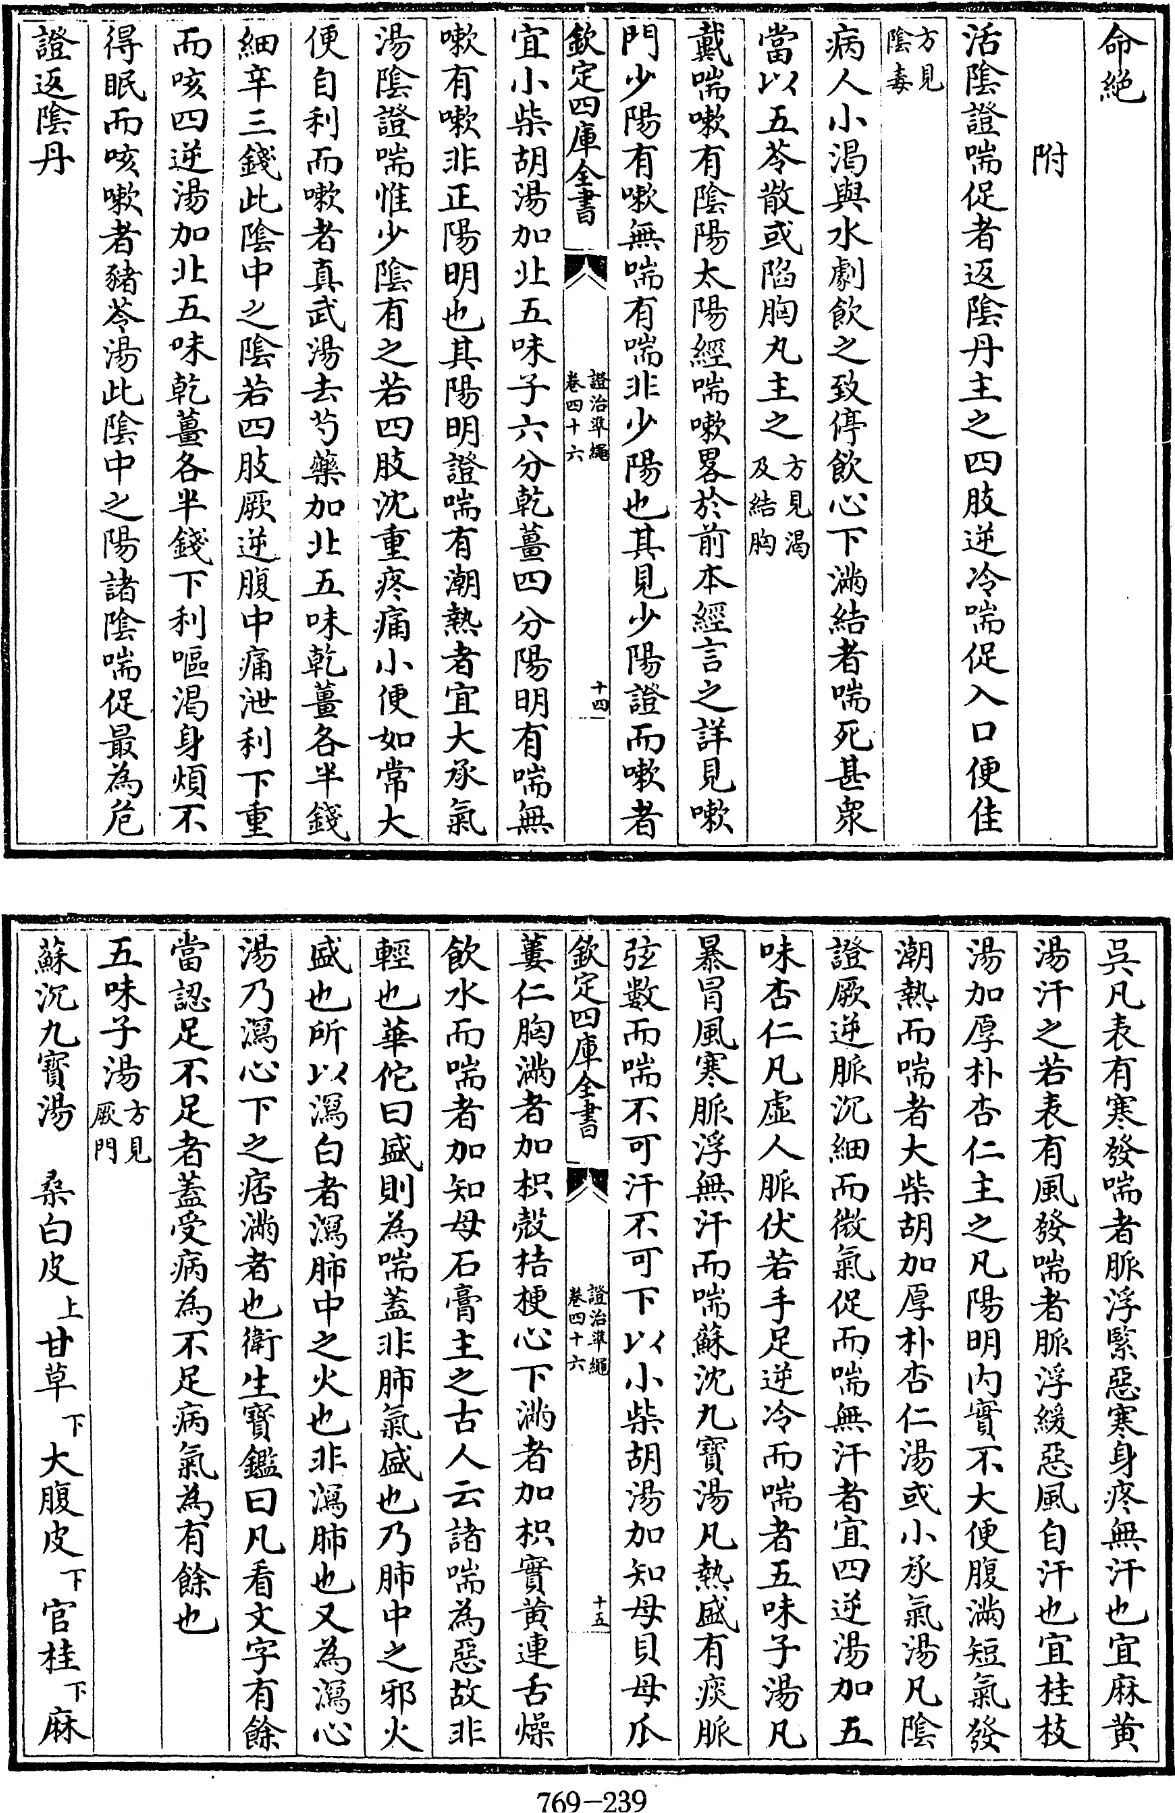 命絶
附
活陰證喘促者返陰丹主之四肢逆冷喘促入口便佳
方見陰毒
病人小渴與水劇飲之致停飲心下滿結者喘死甚衆
當以五苓散或陷胸丸主之方見渴及結胸
戴喘嗽有陰陽太陽經喘嗽畧於前本經言之詳見嗽
門少陽有嗽無喘有喘非少陽也其見少陽證而嗽者
欽定四庫全書 證治準繩卷四十六 十四
宜小柴胡湯加北五味子六分乾薑四分陽明有喘無
嗽有嗽非正陽明也其陽明證喘有潮熱者宜大承氣
湯陰證喘惟少陰有之若四肢沈重疼痛小便如常大
便自利而嗽者真武湯去芍藥加北五味乾薑各半錢
細辛三錢此陰中之陰若四肢厥逆腹中痛泄利下重
而咳四逆湯加北五味乾薑各半錢下利嘔渴身煩不
得眠而咳嗽者豬苓湯此陰中之陽諸陰喘促最為危
證返陰丹
吳凡表有寒發喘者脈浮緊惡寒身疼無汗也宜麻黃
湯汗之若表有風發喘者脈浮緩惡風自汗也宜桂枝
湯加厚朴杏仁主之凡陽明内實不大便腹滿短氣發
潮熱而喘者大柴胡加厚朴杏仁湯或小承氣湯凡陰
證厥逆脈沉細而微氣促而喘無汗者宜四逆湯加五
味杏仁凡虛人脈伏若手足逆冷而喘者五味子湯凡
暴冒風寒脈浮無汗而喘蘇沈九寶湯凡熱盛有痰脈
弦數而喘不可汗不可下以小柴胡湯加知母貝母瓜
欽定四庫全書 證治準繩卷四十六 十五
蔞仁胸滿者加枳殼桔梗心下滿者加枳實黃連舌燥
飲水而喘者加知母石膏主之古人云諸喘為惡故非
輕也華佗曰盛則為喘蓋非肺氣盛也乃肺中之邪火
盛也所以瀉白者瀉肺中之火也非瀉肺也又為瀉心
湯乃瀉心下之痞滿者也衛生寶鑑曰凡看文字有餘
當認足不足者蓋受病為不足病氣為有餘也
五味子湯方見厥門
蘇沉九寶湯 桑白皮上甘草下大腹皮下官桂下麻
769-239